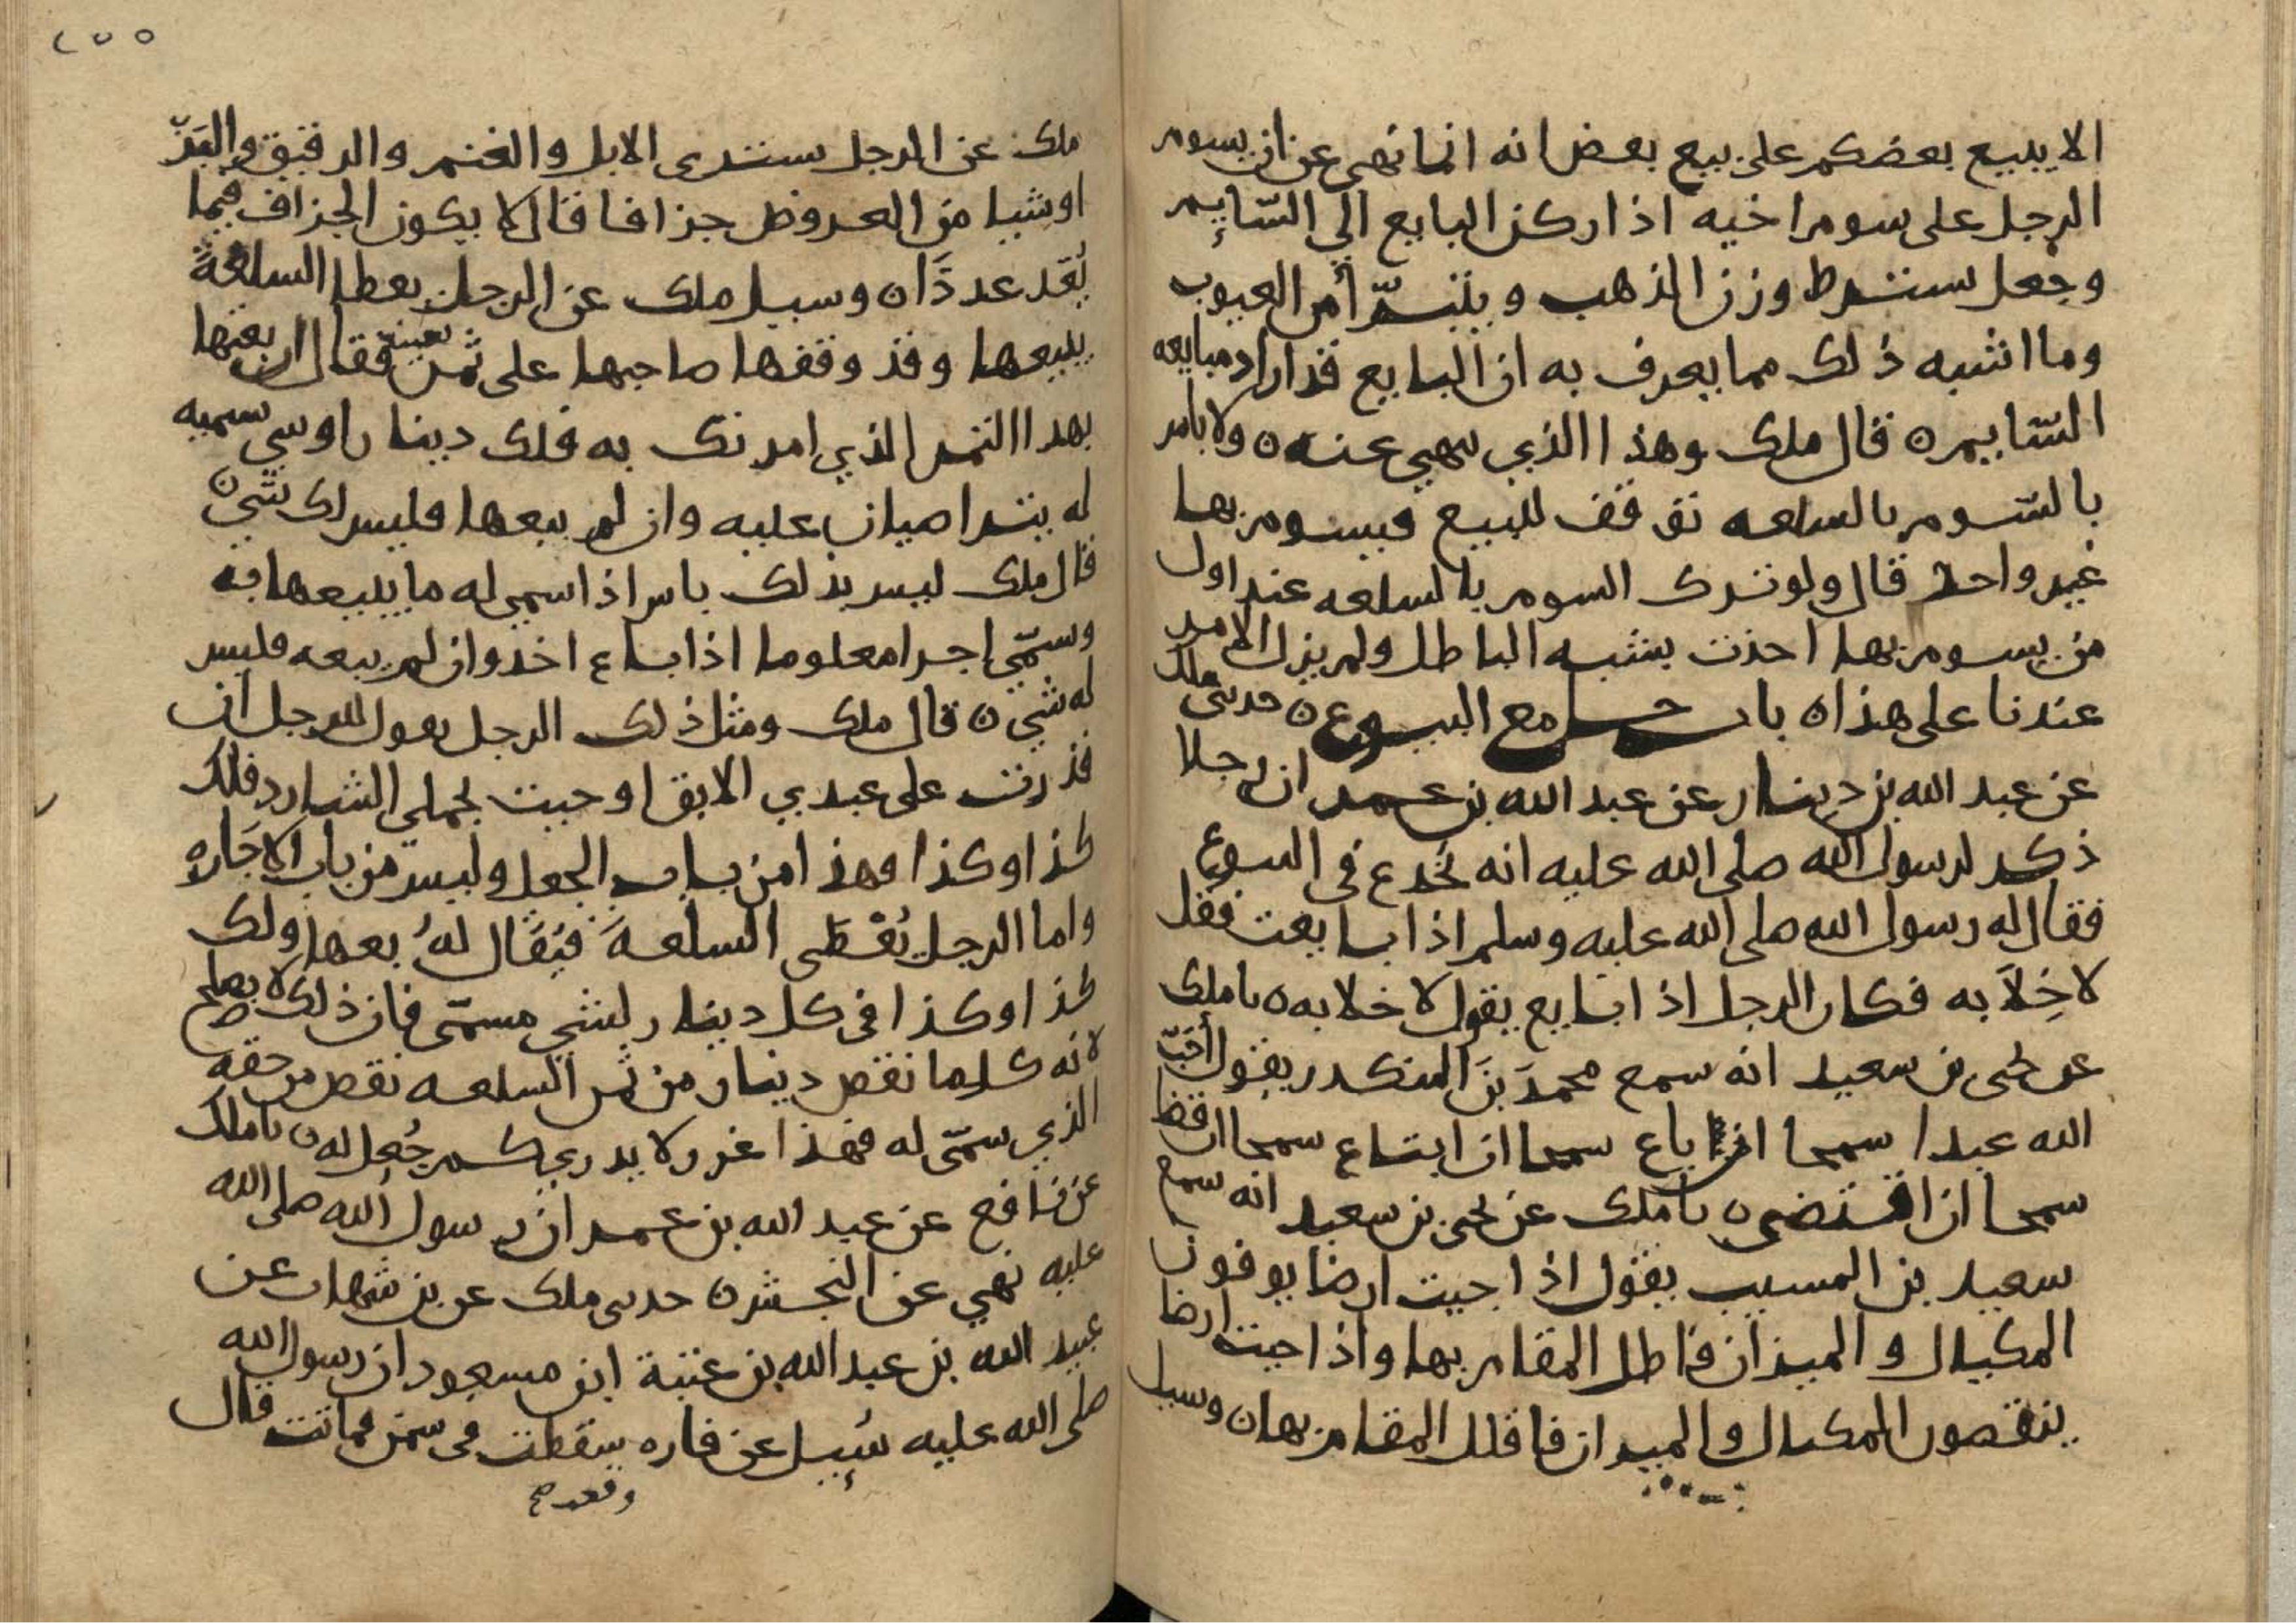 الا يبيع بعضكم على بيع بعض انه انما نهى عن ان يسوم
الرجل على سوم اخيه اذا ركن البايع الي السّايم
وجعل يشترط وزن الذهب ويتبرّأ من العيوب
وما اشبه ذلك مما يعرف به ان البايع قد اراد مبايعه
السّايم ه قال ملك وهذا الذي نهي عنه ه ولا باس
بالسّوم بالسلعه توقف للبيع فيسوم بها
غير واحد قال ولو ترك السوم بالسلعه عند اول
من يسوم بها اخذت بشبه الباطل ولم يزل الامر
عندنا على هذا ه باب جامع البيوع ه حدثني ملك
عن عبد الله بن دينار عن عبد الله بن عمر ان رجلا
ذكر لرسول الله صلى الله عليه انه يُخدع في البيوع
فقال له رسول الله صلى الله عليه وسلم اذا بايعت فقل
لا خِلاَبه فكان الرجل اذا بايع يقول لا خلابه ه نا ملك
عن يحيى بن سعيد انه سمع محمدَ بنَ المنكدر يقول أحَبّ
الله عبدا سمحا ان باع سمحا ان ابتاع سمحا ان قضا
سمحا ان اقتضى ه نا ملك عن يحيى بن سعيد انه سمع
سعيد بن المسيب يقول اذا جيت ارضا يوفون
المكيال والميزان فاطل المقام بها واذا جيت ارضا
ينقصون المكيال والميزان فاقلل المقام بها ه وسيل
ملك عن الرجل يشتري الابل والغنم والرقيق والبَزّ
او شيا من العروض جزافا قال لا يكون الجزاف فيما
يُعَد عددَا ه وسيل ملك عن الرجل يعطا السلعةَ
يبيعها وقد وقفها صاحبها على ثمن بعينه فقال ان بعتها
بهذا الثمن الذي امرتك به فلك دينار او شي سميه
له يتراضيان عليه وان لم يبعها فليس لك شي ه
قال ملك ليس بذلك باس اذا سمى له ما يبيعها به
وسمّى اجرا معلوما اذا باع اخذ وان لم يبعه فليس
له شي ه قال ملك ومثل ذلك الرجل يقول للرجل ان
قدرت على عبدي الابق او جيت بجملي الشارد فلك
كذا وكذا وهذا من باب الجعل وليس من باب الاجَاره
واما الرجل يُعْطَى السلعهَ فيُقَال لهُ بعها ولك
كذا وكذا في كل دينار لشي مسمّى فان ذلك لا يصلح
لانه كلما نقص دينار من ثمن السلعه نقص من حقه
الذي سمّى له فهذا غرر لا يدري كم جُعل له ه نا ملك
عن نافع عن عبد الله بن عمر ان رسول الله صلى الله
عليه نهي عن النجش ه حدثني ملك عن بن شهاب عن
عبيد الله بن عبد الله بن عتبة ابن مسعود ان رسول الله
صلى الله عليه سُيِل عن فاره سقطت في سمن فماتت فقال